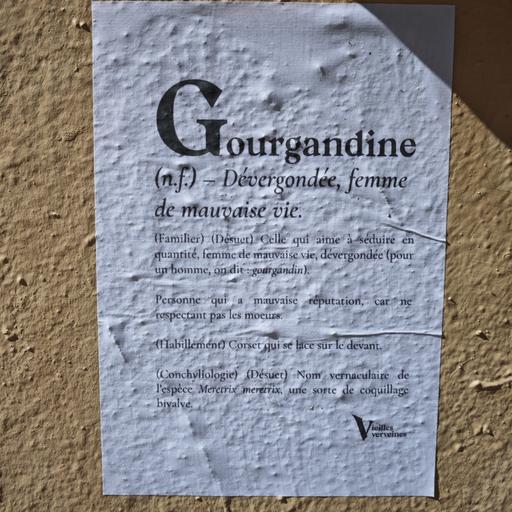 Gourgandine
(n.f.) – Dévergondée, femme
de mauvaise vie.
(Familier) (Désuet) Celle qui aime à séduire en
quantité, femme de mauvaise vie, dévergondée (pour
un homme, on dit : gourgandin).
Personne qui a mauvaise réputation, car ne
respectant pas les moeurs.
(Habillement) Corset qui se lace sur le devant.
(Conchyliologie) (Désuet) Nom vernaculaire de
l'espèce Meretrix meretrix, une sorte de coquillage
bivalve.
Vieilles
verveines